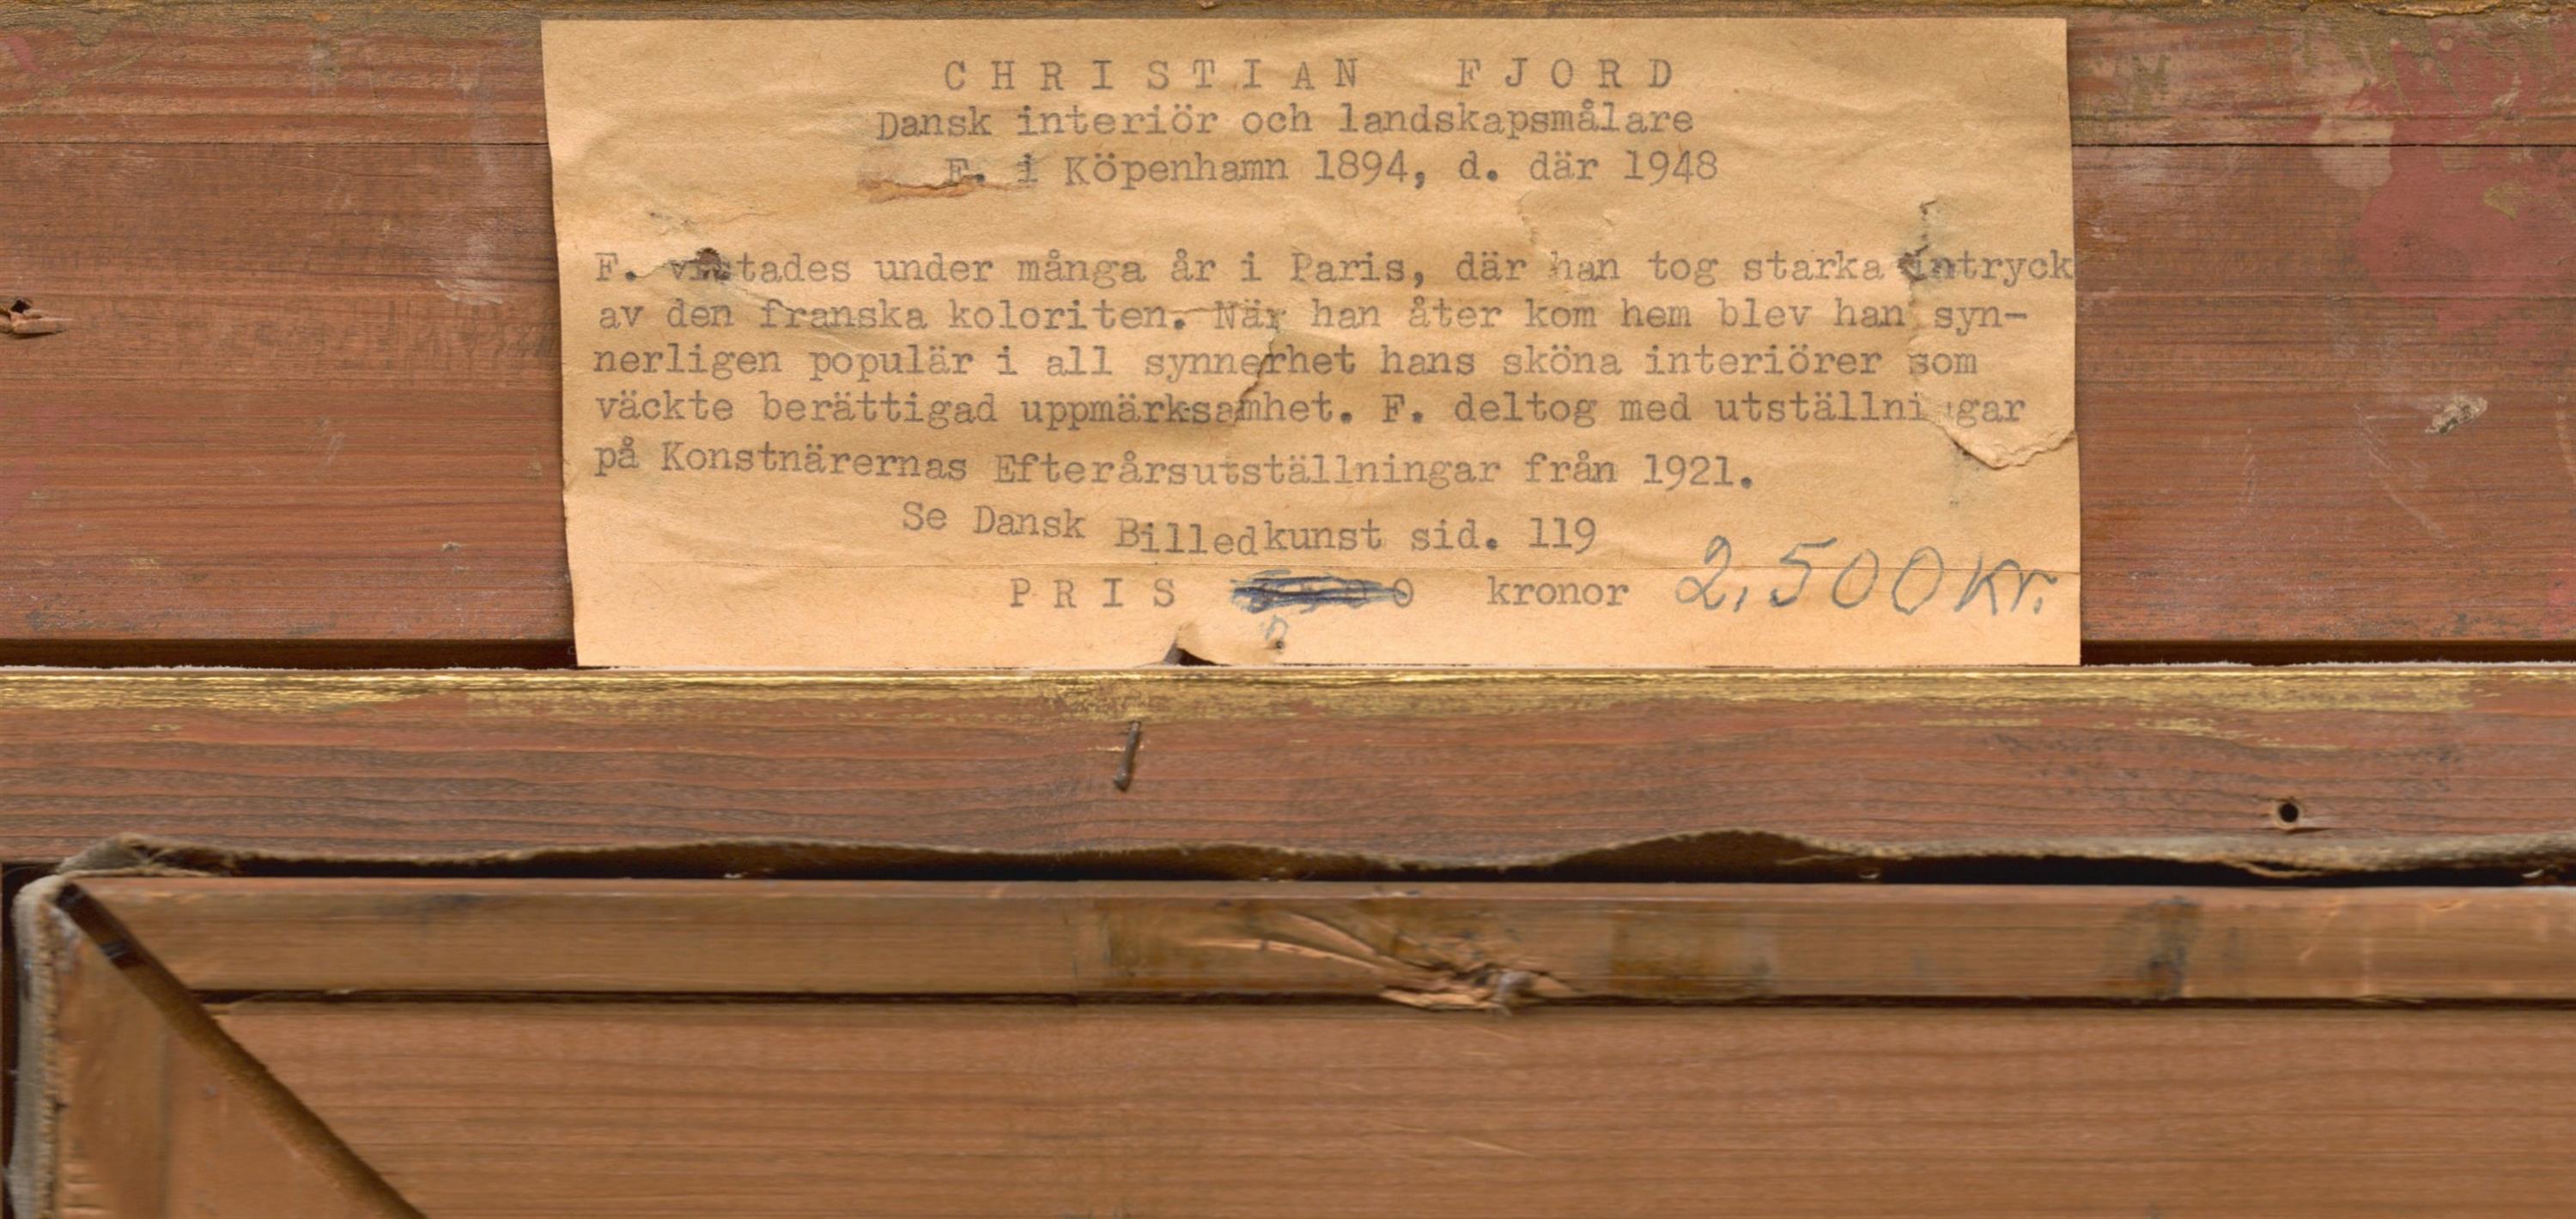 CHRISTIAN FJORD
Dansk interiör och landskapsmålare
F. i Köpenhamn 1894, d. där 1948
F. vistades under många år i Paris, där han tog starka intryck
av den franska koloriten. När han åter kom hem blev han syn-
nerligen populär i all synnerhet hans sköna interiörer som
väckte berättigad uppmärksamhet. F. deltog med utställningar
på Konstnärernas Efterårsutställningar från 1921.
Se Dansk Billedkunst sid. 119
PRIS kronor 2,500 kr.